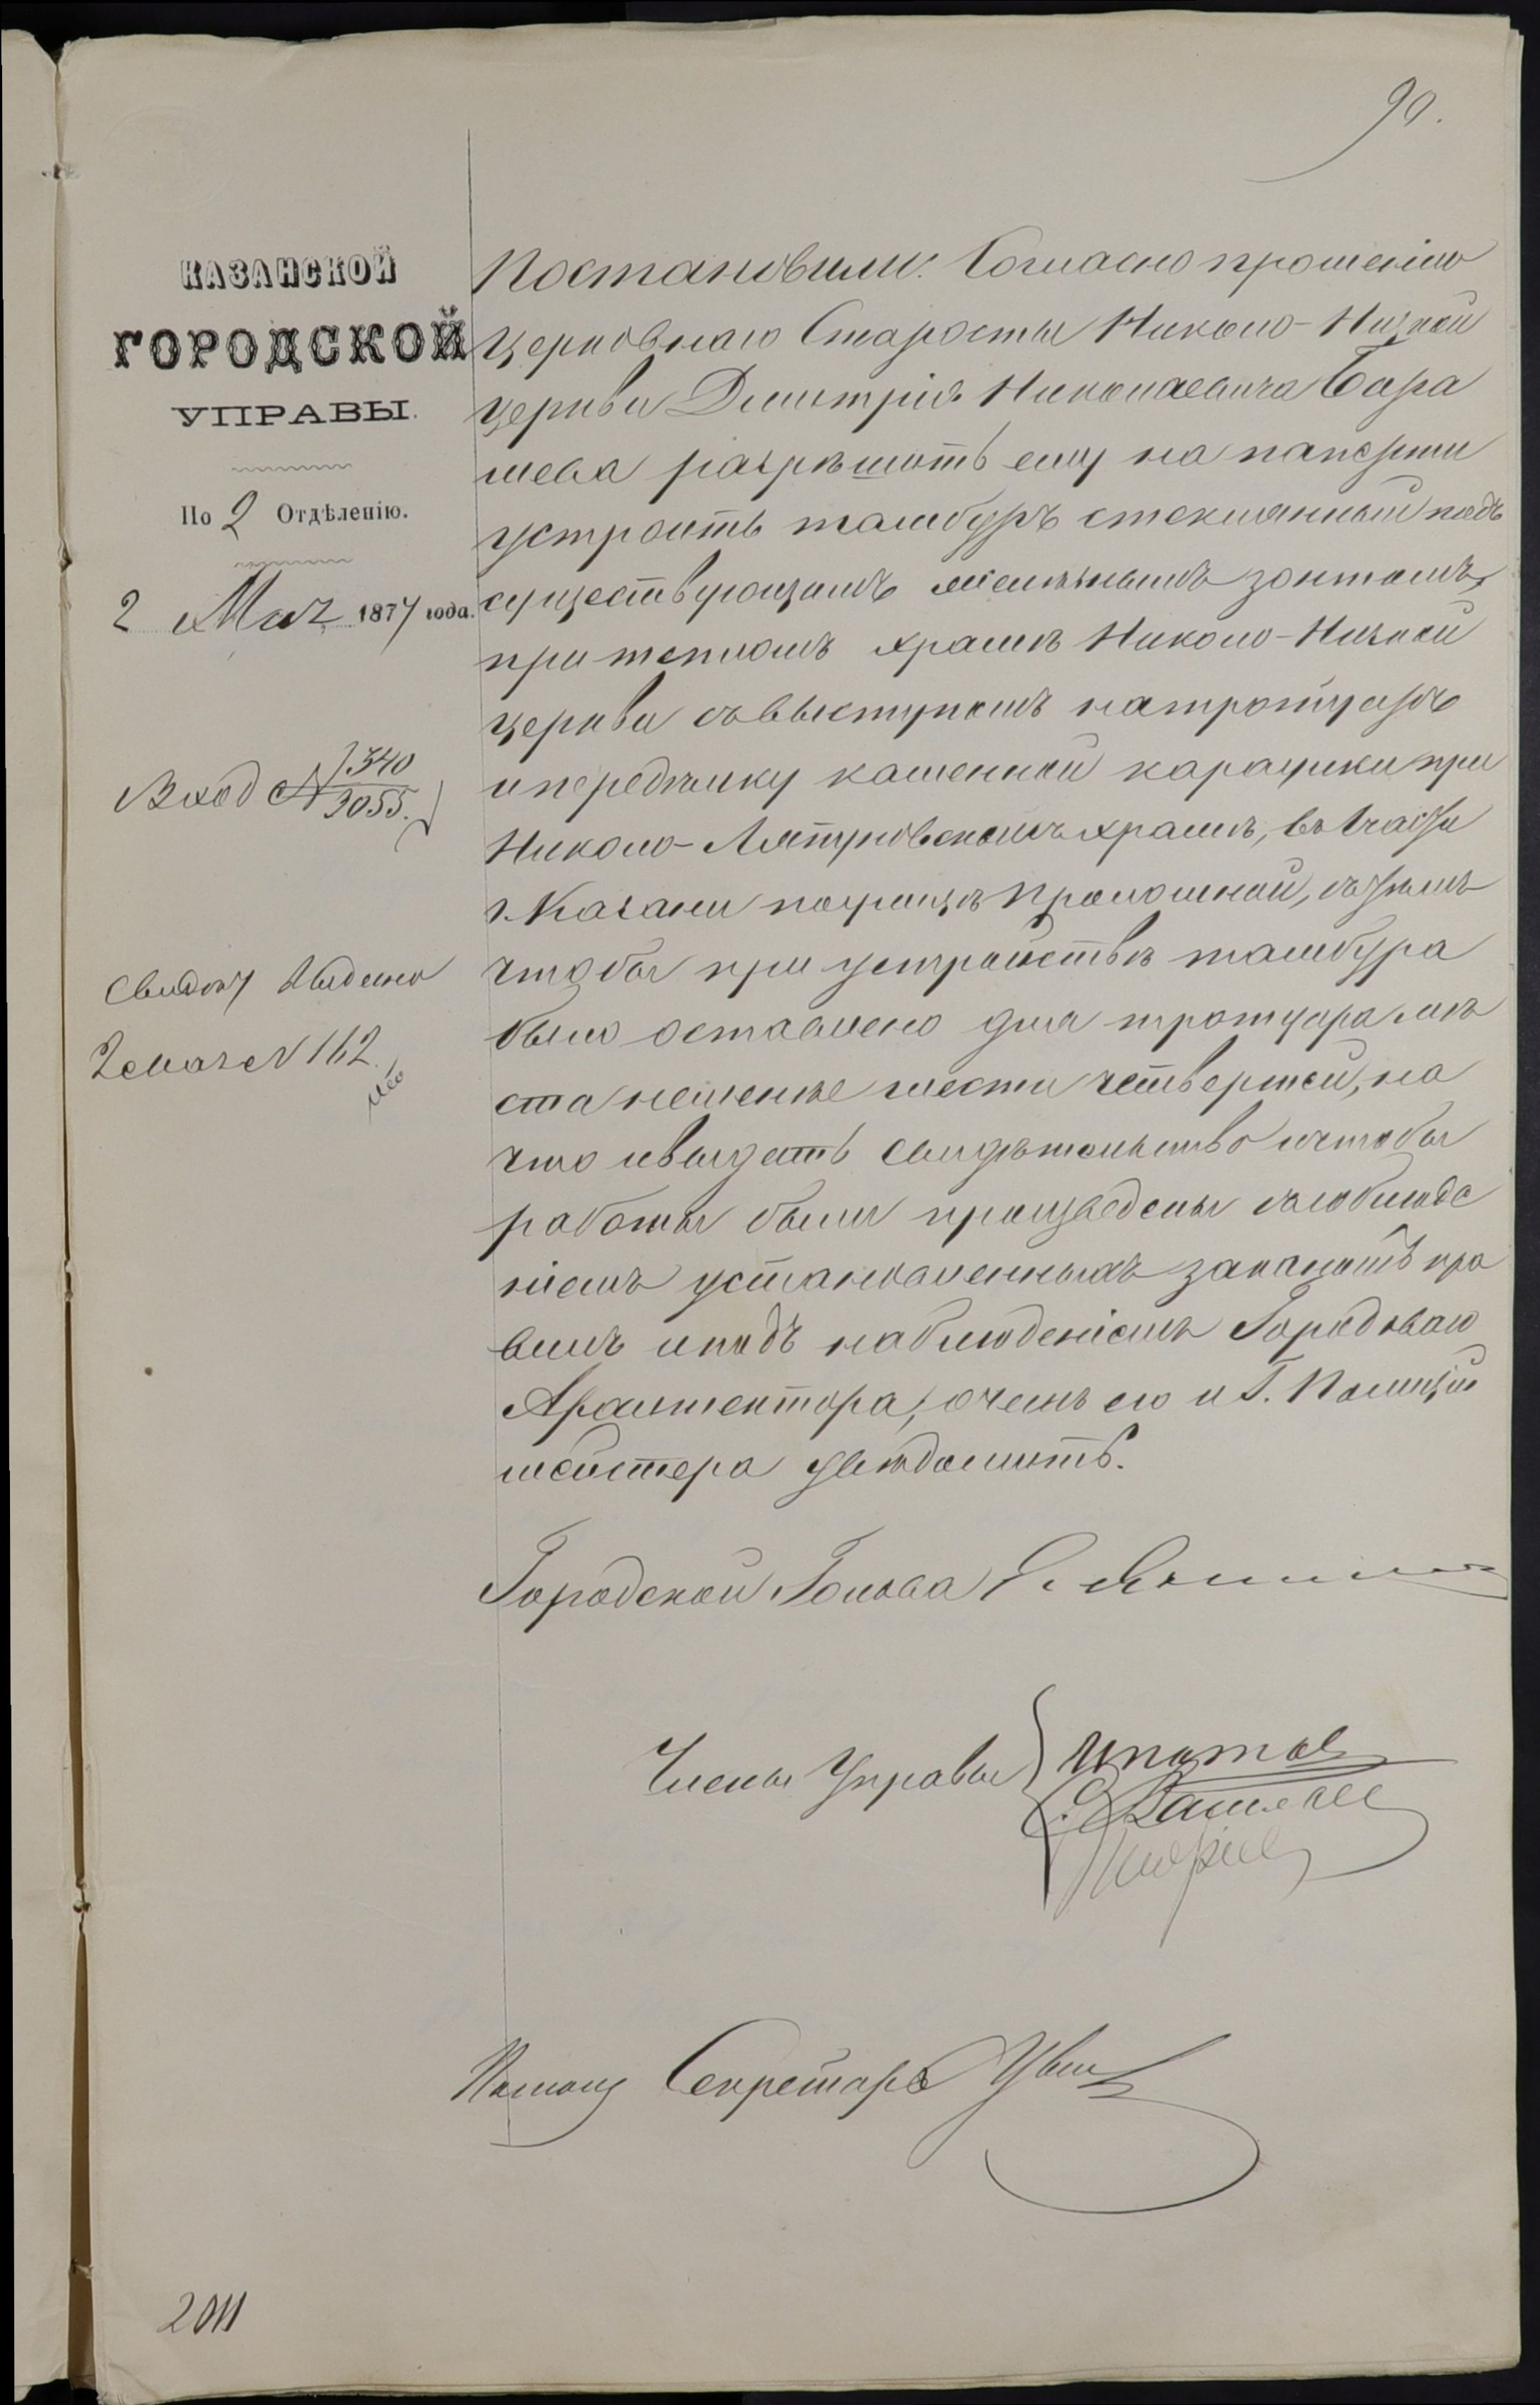 90.
КАЗАНСКОЙ
ГОРОДСКОЙ
УПРАВЫ.
По 2 Отдѣленію.
2 Мая 1877 года.
Вход № 1340
3055.
Свидѣт Выдано
2 мая № 162
Постановили: Согласно прошенію
церковнаго Старосты Николо-Низкой
церкви Дмитрія Николаевича Бара
шева разрѣшить ему на паперти
устроить тамбуръ стеклянный подъ
существующимъ желѣзнымъ зонтомъ,
при тепломъ храмѣ Николо-Низкой
церкви съ выступомъ на тротуаръ
и передѣлку каменной караулки при
Николо-Ляпуновскомъ храмѣ, въ 1 части
г. Казани по улицѣ Проломной, съ тѣмъ
чтобы при устройствѣ тамбура
было оставлено для тротуара мѣ
ста неменѣе шести четвертей, на
что и выдать свидѣтельство и чтобы
работы были произведены съ соблюде
ніемъ установленныхъ закономъ пра
вилъ и подъ наблюденіемъ Городоваго
Архитектора, о чемъ его и Г. Полицій
мейстера увѣдомить.
Городской Голова
Члены Управы Ипатов
Помощ Секретарь
2011